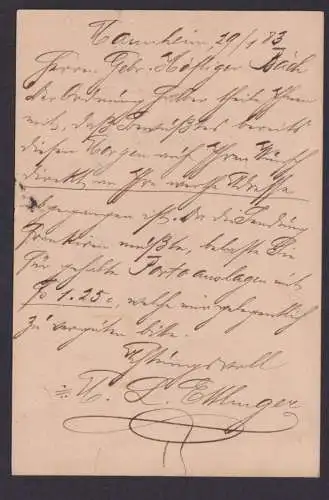 Mannheim, 29/1 83
Herren Gebr. Höfliger Bäch
Der Ordnung halber theile Ihnen
mit, daß Bewußtes bereits
diesen Morgen auf Ihren Wunsch
direkt an Ihre werthe Adresse
abgegangen ist. Da die Sendung
frankiren mußte, belaste Sie
für gehabte Portoauslagen mit
1.25 c, welche mir gelegentlich
zu vergüten bitte.
Achtungsvoll
L. Ettlinger